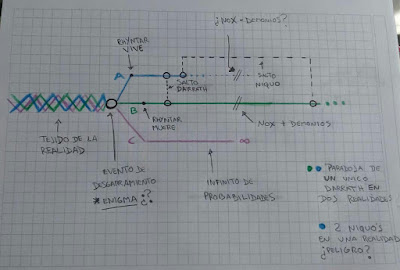 ¿NOX + DEMONIOS?
RHYNTAR
VIVE
A
SALTO
DARRATH
SALTO
NIQUO
B
RHYNTAR
MUERE
NOX + DEMONIOS
C
∞
TEJIDO DE LA
REALIDAD
EVENTO DE
DESGARRAMIENTO
* ENIGMA ¿?
INFINITO DE
PROBABILIDADES
PARADOJA DE
UN ÚNICO
DARRATH EN
DOS REALIDADES
2 NIQUOS
EN UNA REALIDAD
¿PELIGRO?